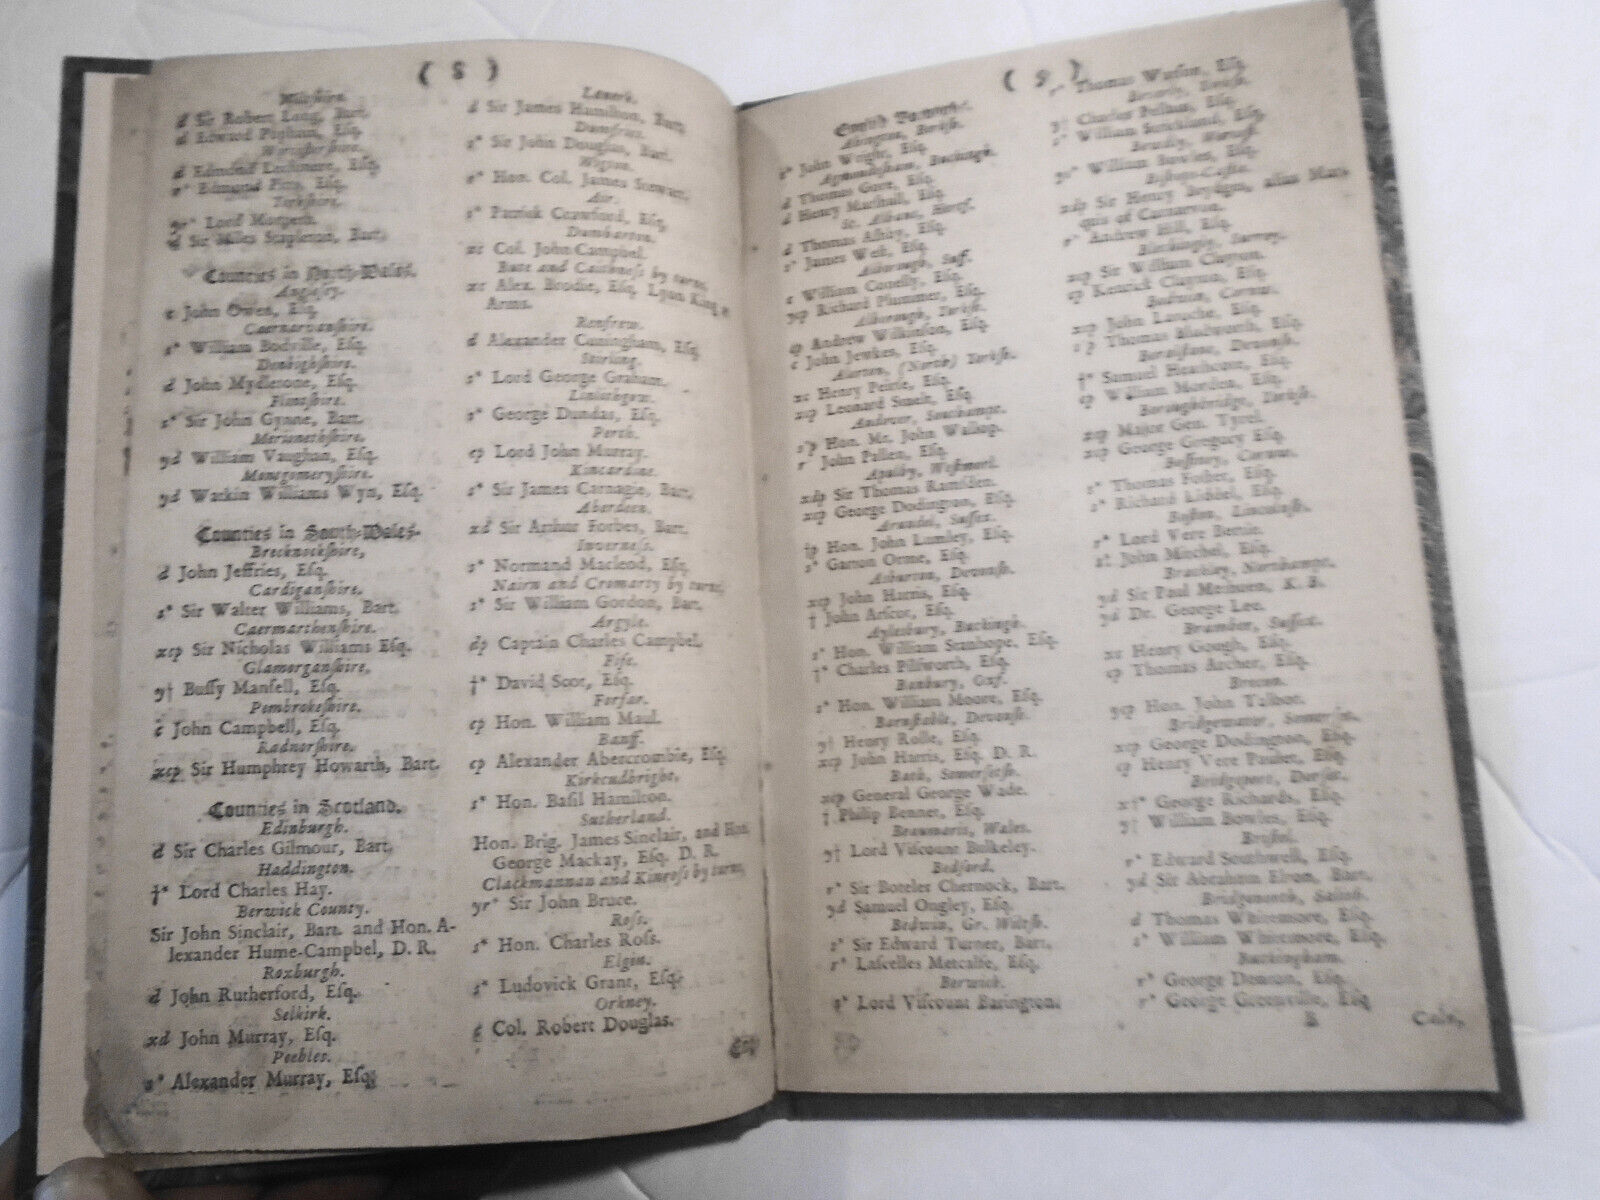 ( 8 )
Wiltshire.
d Sir Robert Long, Bart.
d Edward Popham, Eſq.
Worceſterſhire.
d Edmund Lechmere, Eſq.
s* Edmund Pitts, Eſq.
Yorkſhire.
yr* Lord Morpeth.
d Sir Miles Stapleton, Bart.
Counties in North-Wales.
Angleſey.
c John Owen, Eſq.
Caernarvanſhire.
s* William Bodville, Eſq.
Denbighſhire.
d John Mydletone, Eſq.
Flintſhire.
s* Sir John Gynne, Bart.
Merionethſhire.
yd William Vaughan, Eſq.
Montgomeryſhire.
yd Watkin Williams Wyn, Eſq.
Counties in South-Wales.
Brecknockſhire,
d John Jeffries, Eſq.
Cardiganſhire.
s* Sir Walter Williams, Bart.
Caermarthenſhire.
xcp Sir Nicholas Williams Eſq.
Glamorganſhire.
y† Buſſy Manſell, Eſq.
Pembrokeſhire.
c John Campbell, Eſq.
Radnorſhire.
xcp Sir Humphrey Howarth, Bart.
Counties in Scotland.
Edinburgh.
d Sir Charles Gilmour, Bart.
Haddington.
†* Lord Charles Hay.
Berwick County.
Sir John Sinclair, Bart. and Hon. A-
lexander Hume-Campbel, D. R.
Roxburgh.
d John Rutherford, Eſq.
Selkirk.
xd John Murray, Eſq.
Peebles.
s* Alexander Murray, Eſq;
Lanerk.
d Sir James Hamilton, Bart.
Dumfries.
s* Sir John Douglas, Bart.
Wigton.
s* Hon. Col. James Stewart.
Air.
s* Patrick Crawford, Eſq.
Dumbarton.
xc Col. John Campbel.
Bute and Caithneſs by turns,
xc Alex. Brodie, Eſq. Lyon King at
Arms.
Renfrew.
d Alexander Cuningham, Eſq.
Sterling.
s* Lord George Graham.
Linlithgow.
s* George Dundas, Eſq.
Perth.
cp Lord John Murray.
Kincardine.
s* Sir James Carnagie, Bart.
Aberdeen.
xd Sir Arthur Forbes, Bart.
Inverneſs.
s* Normand Macleod, Eſq.
Nairn and Cromarty by turns,
s* Sir William Gordon, Bar.
Argyle.
dp Captain Charles Campbel.
Fife.
†* David Scot, Eſq.
Forfar.
cp Hon. William Maul.
Banff.
cp Alexander Abercrombie, Eſq.
Kirkcudbright,
s* Hon. Baſil Hamilton.
Sutherland.
Hon. Brig. James Sinclair, and Hon.
George Mackay, Eſq. D. R.
Clackmannan and Kinroſs by turns,
yr* Sir John Bruce.
Roſs.
s* Hon. Charles Roſs.
Elgin.
s* Ludovick Grant, Eſq.
Orkney.
Col. Robert Douglas.
( 9 )
Abington, Berkſh.
s* John Wright, Eſq.
Agmondeſham, Buckingh.
d Thomas Gore, Eſq.
d Henry Marſhall, Eſq.
St. Albans, Hertf.
d Thomas Aſhby, Eſq.
s* James Weſt, Eſq.
Alborough, Suff.
c William Conelly, Eſq.
ycp Richard Plummer, Eſq.
Alborough, Yorkſh.
cp Andrew Wilkinſon, Eſq.
c John Jewkes, Eſq.
Alerton, (North) Yorkſh.
xc Henry Peirſe, Eſq.
xcp Leonard Smelt, Eſq.
Andover, Southampt.
s*p Hon. Mr. John Wallop.
r* John Pollen, Eſq.
Apulby, Weſtmorl.
xdp Sir Thomas Ramſden.
xcp George Dodington, Eſq.
Arundel, Suſſex.
†p Hon. John Lumley, Eſq.
s* Garton Orme, Eſq.
Aſhburton, Devonſh.
xcp John Harris, Eſq.
† John Arſcot, Eſq.
Aylesbury, Buckingh.
s* Hon. William Stanhope, Eſq.
†* Charles Pilſworth, Eſq.
Banbury, Oxf.
s* Hon. William Moore, Eſq.
Barnſtable, Devonſh.
y† Henry Rolle, Eſq.
xcp John Harris, Eſq. D. R.
Bath, Somerſetſh.
xcp General George Wade.
† Philip Bennet, Eſq.
Beaumaris, Wales.
y† Lord Viſcount Bulkeley.
Bedford.
r* Sir Boteler Chernock, Bart.
yd Samuel Ongley, Eſq.
Bedwin, Gr. Wiltſh.
s* Sir Edward Turner, Bart.
r* Laſcelles Metcalfe, Eſq.
Berwick.
s* Lord Viſcount Barington.
Thomas Watſon, Eſq.
y† Charles Pelham, Eſq.
William Strickland, Eſq.
William Bowles, Eſq.
Biſhops-Caſtle.
xdp Sir Henry Brydges, alias Mar-
quis of Carnarvon.
r* Andrew Hill, Eſq.
Blechingly, Surrey.
xcp Sir William Clayton.
cp Kenrick Clayton, Eſq.
Bodwin, Cornw.
xcp John Laroche, Eſq.
Thomas Bludworth, Eſq.
†* Samuel Heathcote, Eſq.
cp William Morden, Eſq.
Boroughbridge, Yorkſh.
xcp Major Gen. Tyrel.
xcp George Gregory Eſq.
Boſſiney, Cornw.
s* Thomas Foſter, Eſq.
s* Richard Liddel, Eſq.
Boſton, Lincolnſh.
s* Lord Vere Bertie.
s† John Mitchel, Eſq.
Brackley, Northampt.
yd Sir Paul Methuen, K. B.
yd Dr. George Lee.
Bramber, Suſſex.
xc Henry Gough, Eſq.
cp Thomas Archer, Eſq.
Brecon.
ycp Hon. John Talbot.
Bridgewater, Somerſet.
xcp George Dodington, Eſq.
cp Henry Vere Poulet, Eſq.
Bridgeport, Dorſet.
x†* George Richards, Eſq.
y† William Bowles, Eſq.
Briſtol.
r* Edward Southwell, Eſq.
yd Sir Abraham Elton, Bart.
Bridgenorth, Salish.
d Thomas Whitmore, Eſq.
s* William Whitmore, Eſq.
Buckingham.
r* George Denton, Eſq.
r* George Greenville, Eſq
B
Caln,